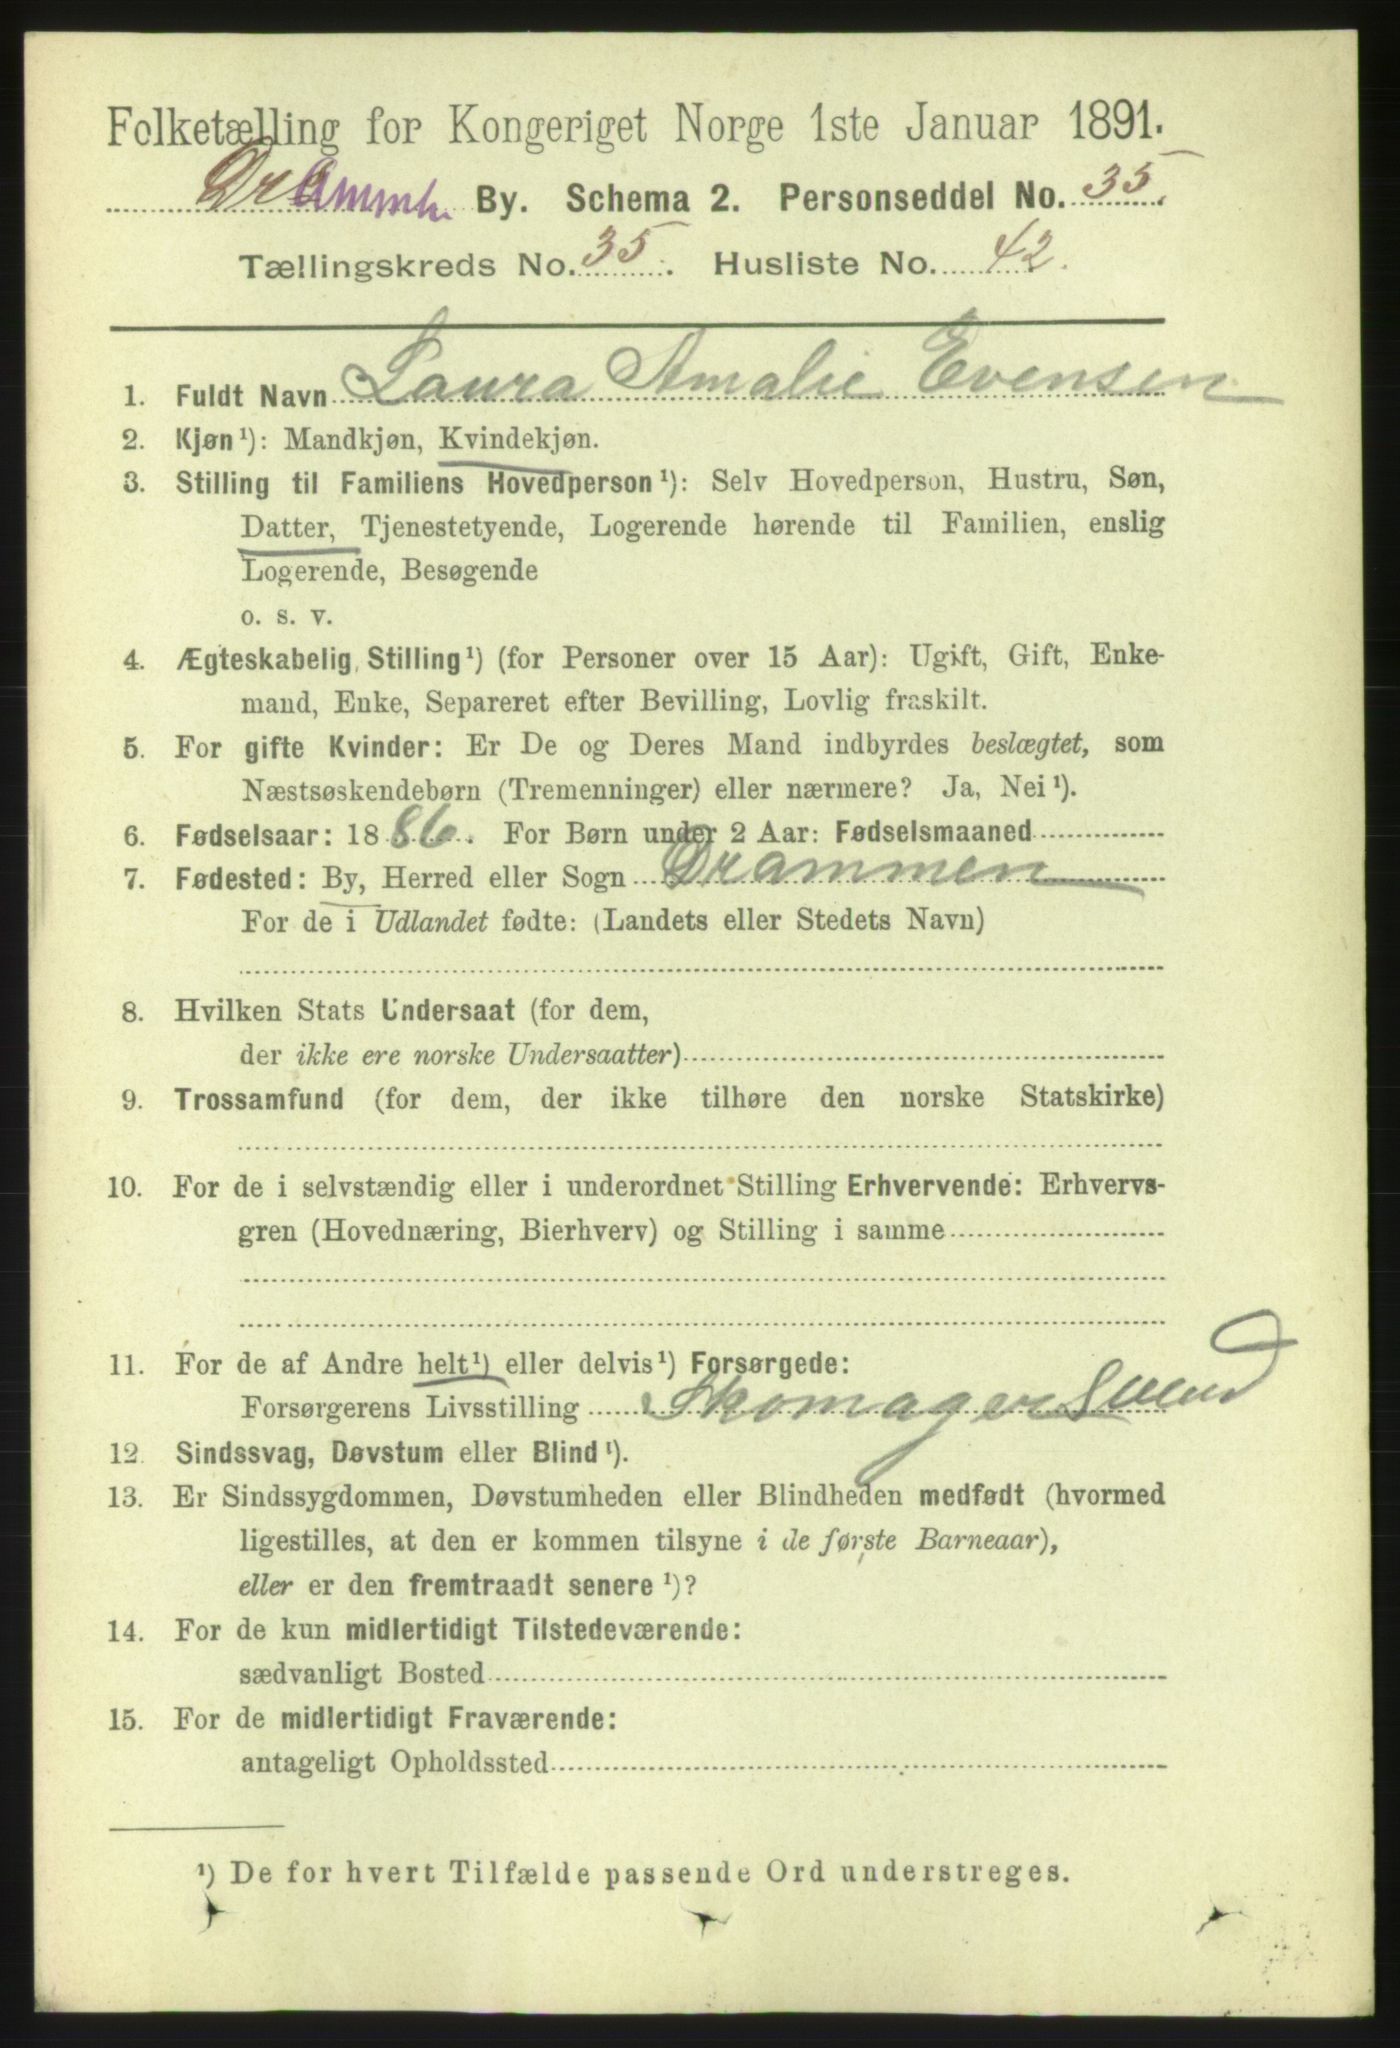 Folketælling for Kongeriget Norge 1ste Januar 1891.
Drammen By. Schema 2. Personseddel No. 35.
Tællingskreds No. 35. Husliste No. 42.
1. Fuldt Navn Laura Amalie Evensen
2. Kjøn¹): Mandkjøn, Kvindekjøn.
3. Stilling til Familiens Hovedperson¹): Selv Hovedperson, Hustru, Søn,
Datter, Tjenestetyende, Logerende hørende til Familien, enslig
Logerende, Besøgende
o. s. v.
4. Ægteskabelig Stilling¹) (for Personer over 15 Aar): Ugift, Gift, Enke-
mand, Enke, Separeret efter Bevilling, Lovlig fraskilt.
5. For gifte Kvinder: Er De og Deres Mand indbyrdes beslægtet, som
Næstsøskendebørn (Tremenninger) eller nærmere? Ja, Nei¹).
6. Fødselsaar: 1886. For Børn under 2 Aar: Fødselsmaaned
7. Fødested: By, Herred eller Sogn Drammen
For de i Udlandet fødte: (Landets eller Stedets Navn)
8. Hvilken Stats Undersaat (for dem,
der ikke ere norske Undersaatter)
9. Trossamfund (for dem, der ikke tilhøre den norske Statskirke)
10. For de i selvstændig eller i underordnet Stilling Erhvervende: Erhvervs-
gren (Hovednæring, Bierhverv) og Stilling i samme
11. For de af Andre helt¹) eller delvis¹) Forsørgede:
Forsørgerens Livsstilling Skomager Svend
12. Sindssvag, Døvstum eller Blind¹).
13. Er Sindssygdommen, Døvstumheden eller Blindheden medfødt (hvormed
ligestilles, at den er kommen tilsyne i de første Barneaar),
eller er den fremtraadt senere¹)?
14. For de kun midlertidigt Tilstedeværende:
sædvanligt Bosted
15. For de midlertidigt Fraværende:
antageligt Opholdssted
¹) De for hvert Tilfælde passende Ord understreges.